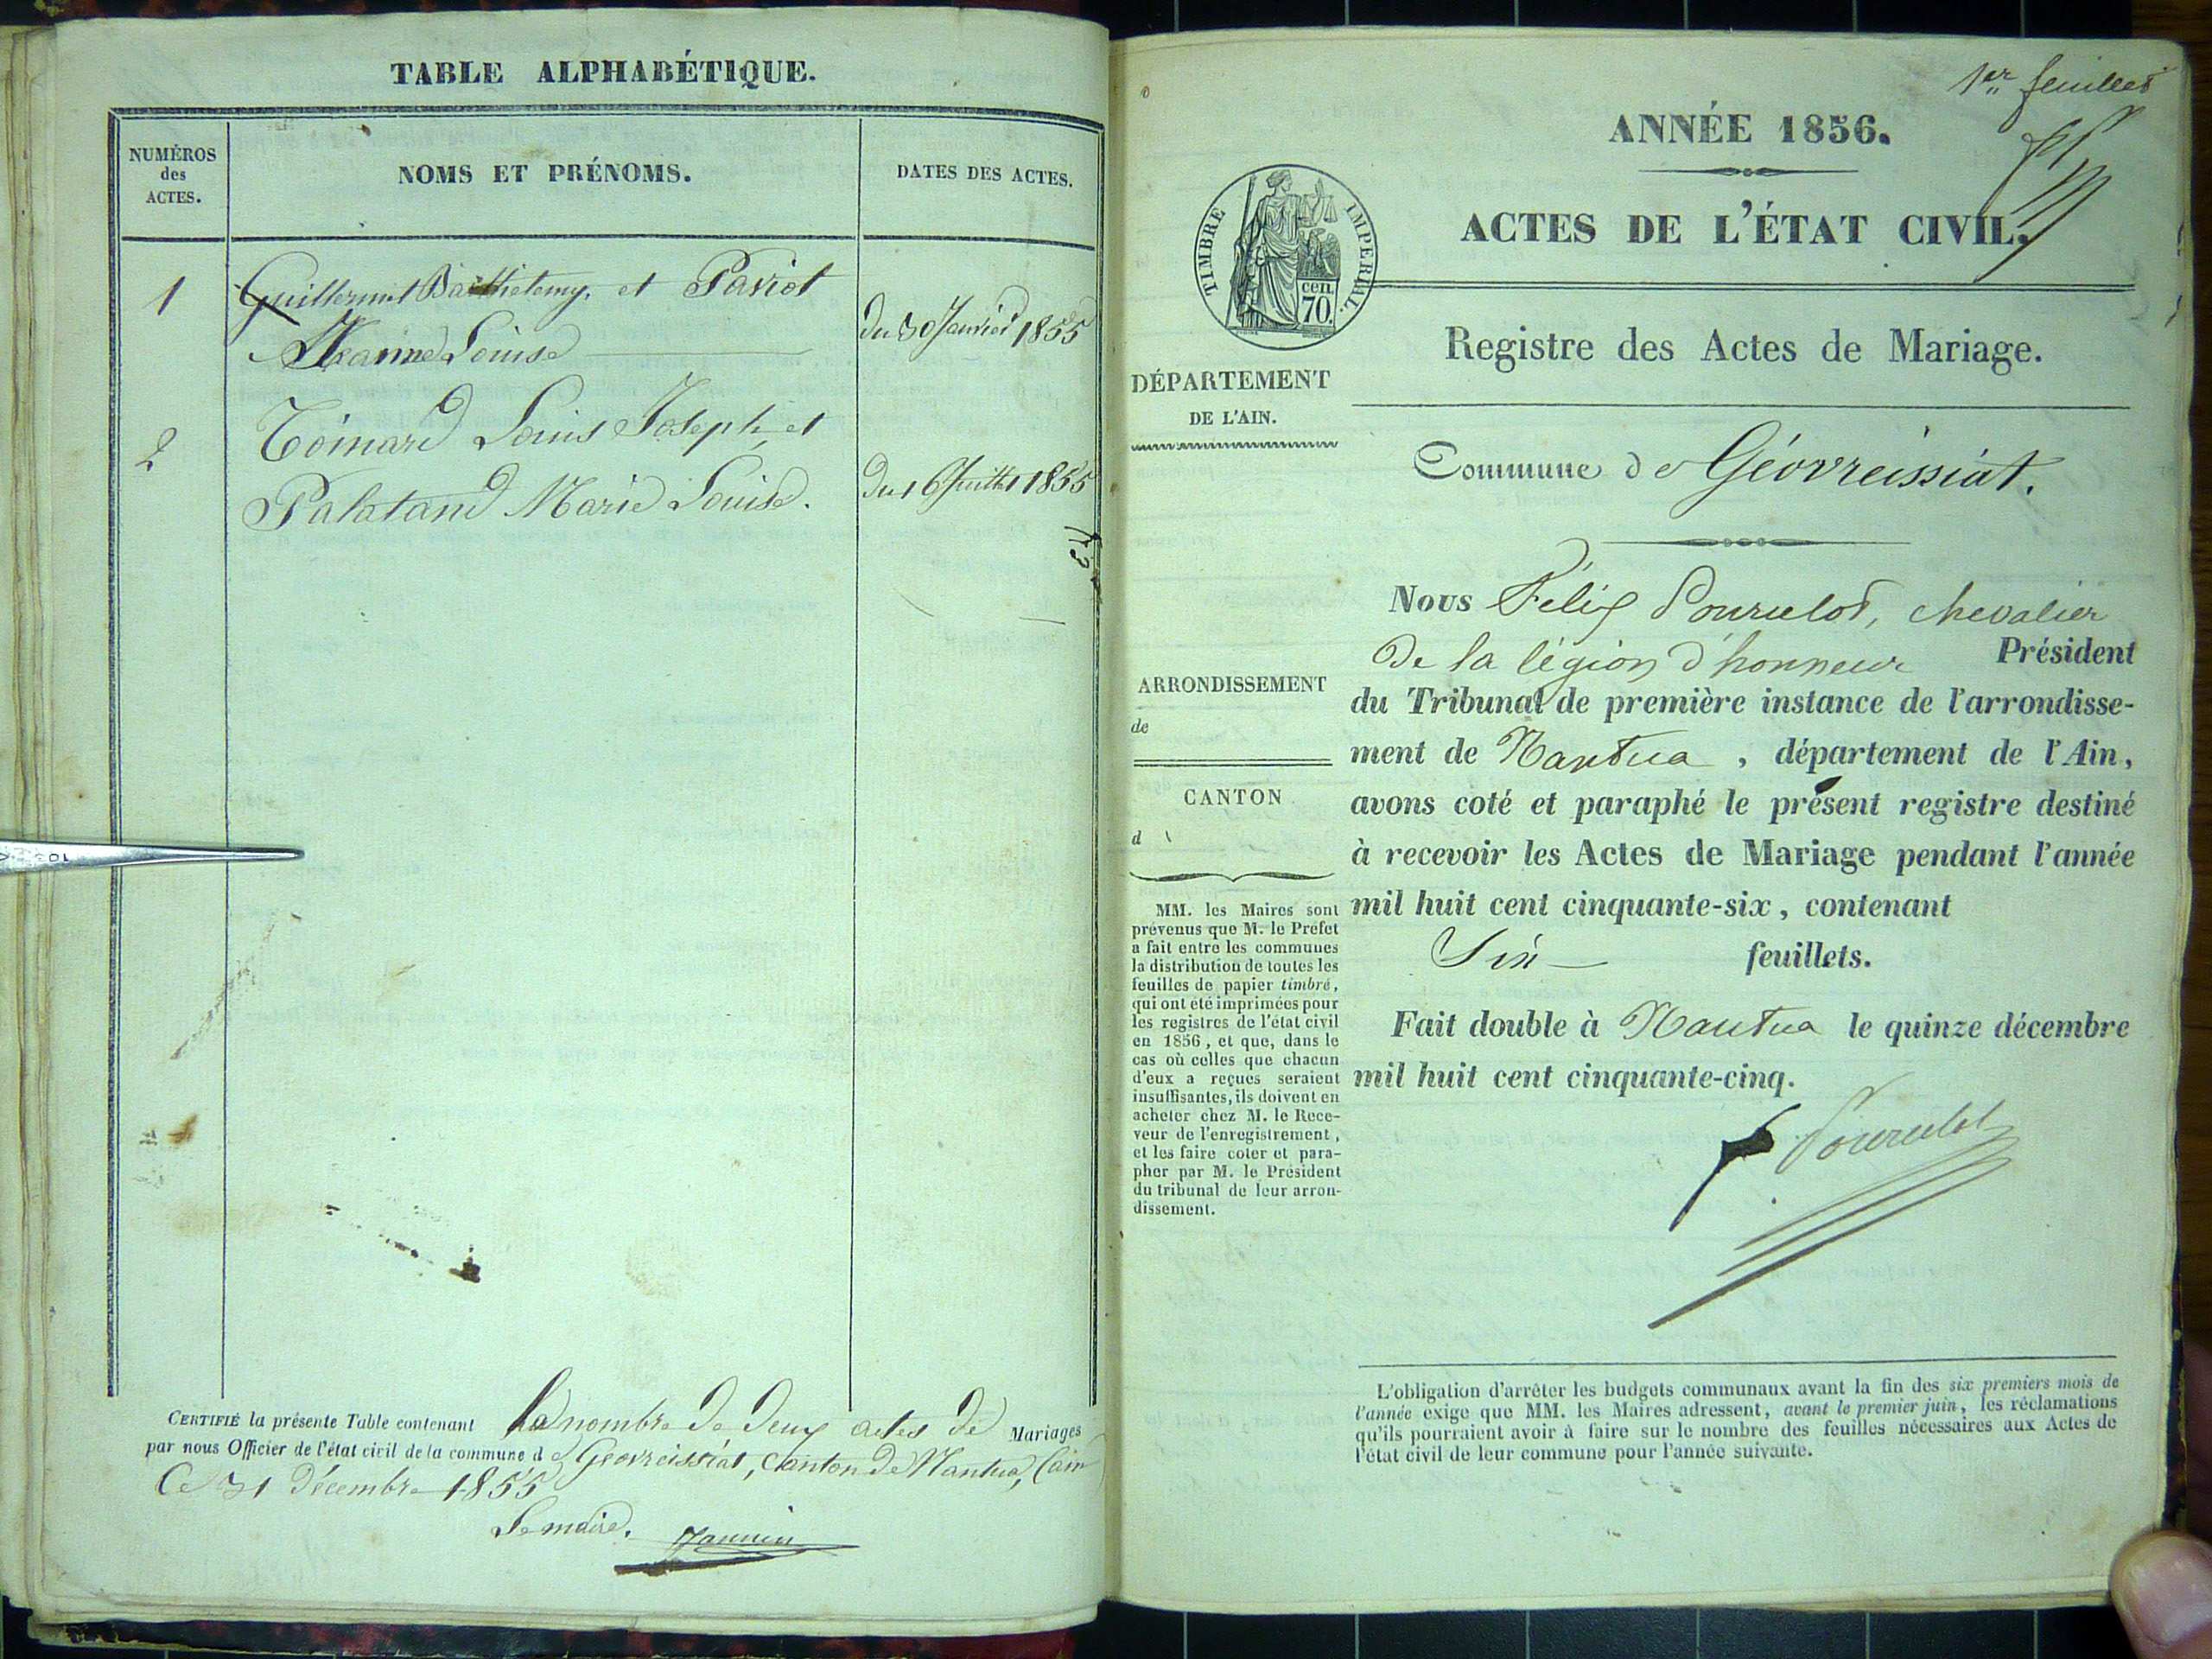 TABLE ALPHABÉTIQUE.
NUMÉROS
des
ACTES.
NOMS ET PRÉNOMS.
DATES DES ACTES.
1
Guillermet Barthelemy, et Paviot
Jeanne Louise
Du 30 Janvier 1855
2
Toinard Louis Joseph, et
Palatand Marie Louise.
Du 16 Juillet 1855
CERTIFIÉ la présente Table contenant le nombre de deux actes de Mariages
par nous Officier de l'état civil de la commune de Géovreissiat, canton de Nantua, (ain
Ce 31 Décembre 1855
Le maire.
1er feuillet
ANNÉE 1856.
ACTES DE L'ÉTAT CIVIL.
TIMBRE IMPERIAL.
CEN.
70.
Registre des Actes de Mariage.
DÉPARTEMENT
DE L'AIN.
Commune de Géovreissiat.
ARRONDISSEMENT
de
CANTON
d
MM. les Maires sont
prévenus que M. le Préfet
a fait entre les communes
la distribution de toutes les
feuilles de papier timbré,
qui ont été imprimées pour
les registres de l'état civil
en 1856, et que, dans le
cas où celles que chacun
d'eux a reçues seraient
insuffisantes, ils doivent en
acheter chez M. le Rece-
veur de l'enregistrement,
et les faire coter et para-
pher par M. le Président
du tribunal de leur arron-
dissement.
Nous Félix Pourcelot, chevalier
De la légion d'honneur Président
du Tribunal de première instance de l'arrondisse-
ment de Nantua, département de l'Ain,
avons coté et paraphé le présent registre destiné
à recevoir les Actes de Mariage pendant l'année
mil huit cent cinquante-six, contenant
Six feuillets.
Fait double à Nantua le quinze décembre
mil huit cent cinquante-cinq.
Pourcelot
L'obligation d'arrêter les budgets communaux avant la fin des six premiers mois de
l'année exige que MM. les Maires adressent, avant le premier juin, les réclamations
qu'ils pourraient avoir à faire sur le nombre des feuilles nécessaires aux Actes de
l'état civil de leur commune pour l'année suivante.